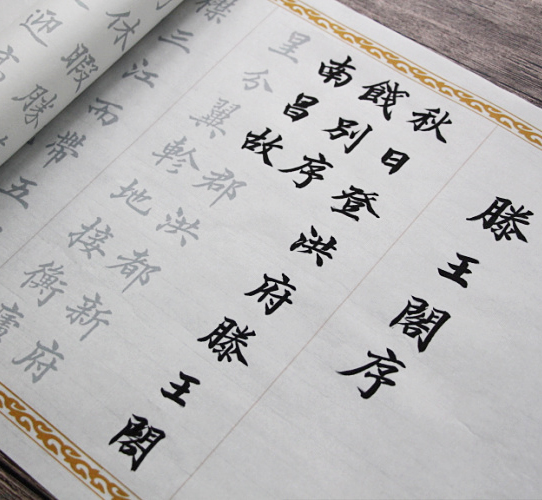 滕王閣序
秋日登洪府滕王閣
餞別序
南昌故郡洪都新府
星分翼軫地接衡廬
襟三江而帶五
休暇勝
迎高